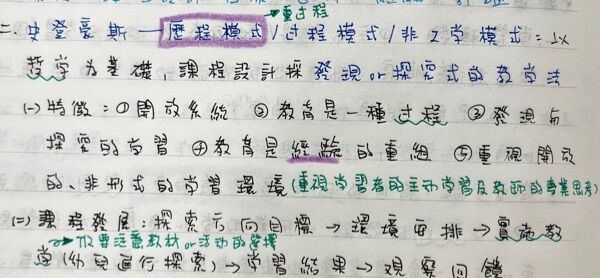 重过程
二、史登豪斯—歷程模式/过程模式/非工学模式=以
哲学为基礎,課程設計採發現or探究式的教学法
(一)特徵:①開放系統 ②教育是一種过程 ③發現与
探究的学習 ④教育是經驗的重組 ⑤重視開放
的、非形式的学習環境(重視学習者的主动学習及教師的專業思考)
(二)課程發展:探索方向目標→環境安排→實施教
→仅要注意教材or活动的選擇
学(幼兒進行探索)→学習結果→观察回饋